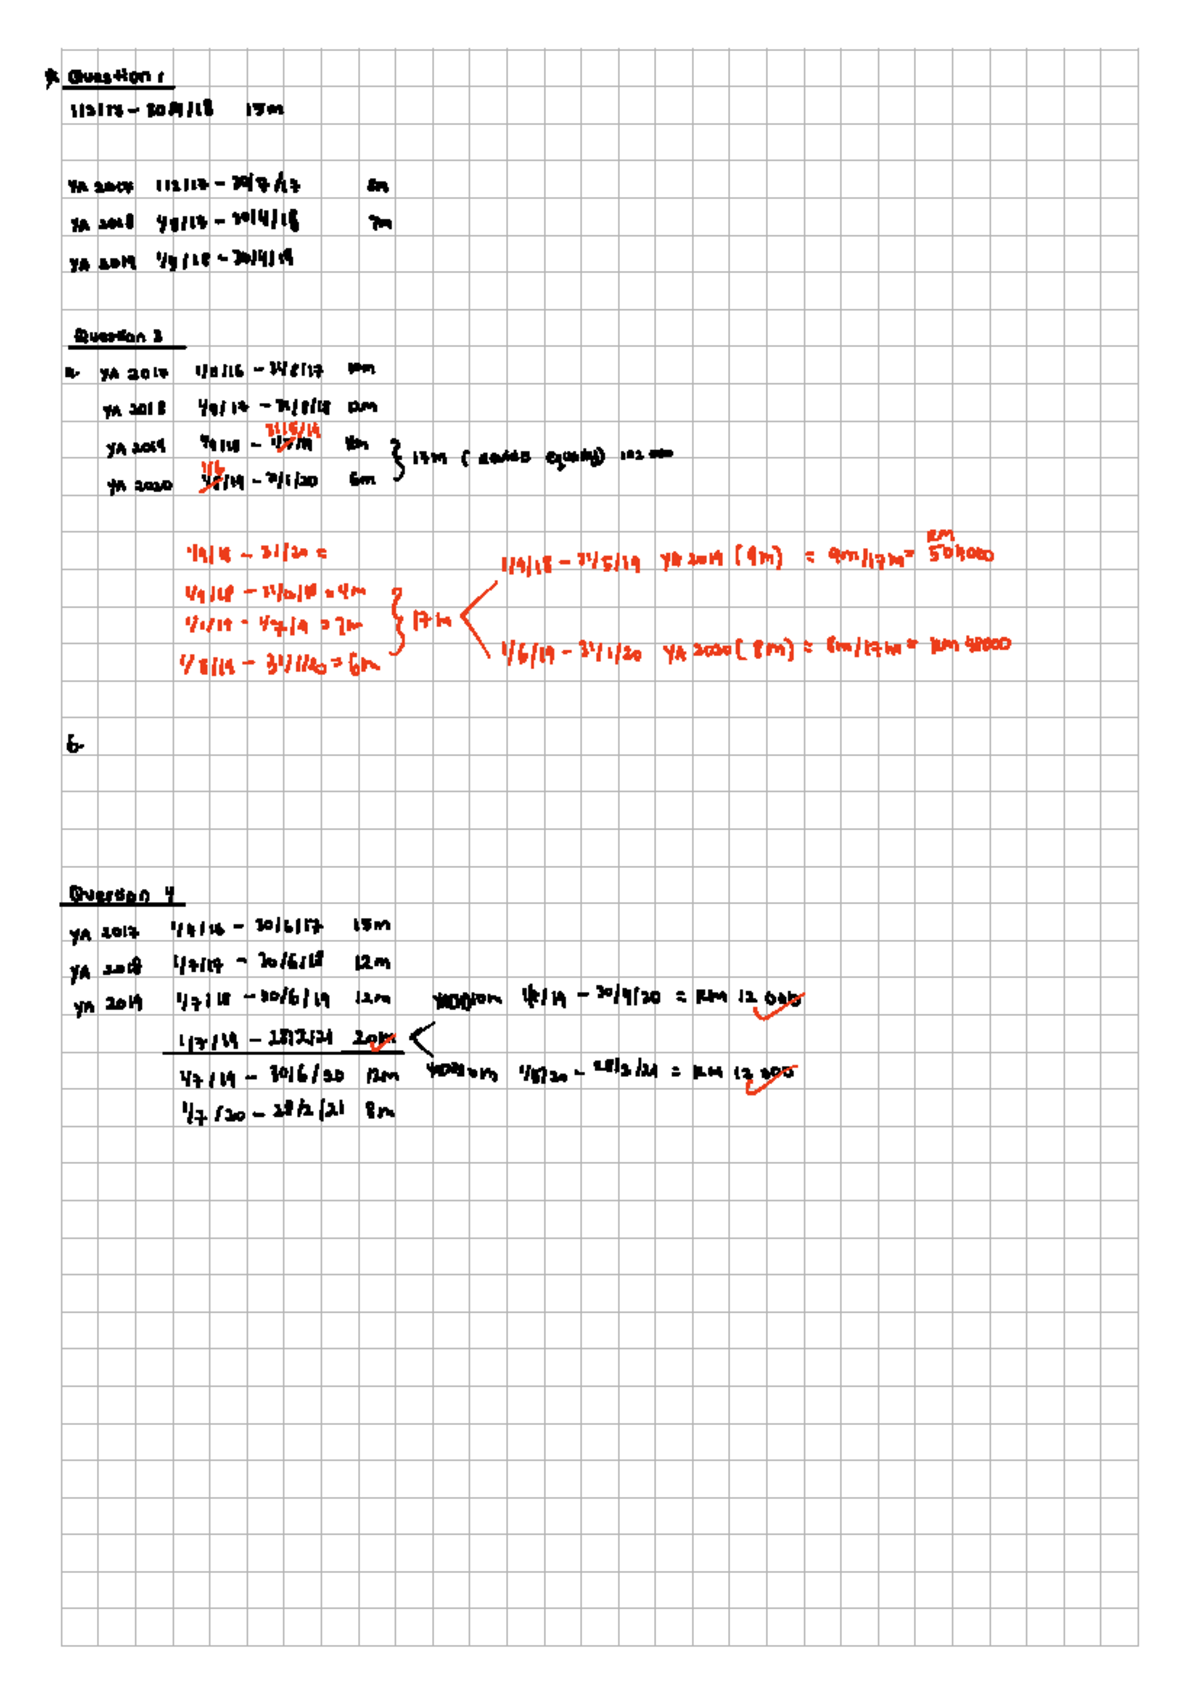 * Question 1
1/2/17 - 30/4/18 15m
YA 2017 1/2/17 - 30/7/17 8m
YA 2018 1/8/17 - 30/4/18 7m
YA 2019 - 30/4/19
Question 3
a. YA 2017 - 31/8/17
YA 2018 1/9/17 - 31/8/18 12m
31/5/19
YA 2019 1/9/18 -
1/6
YA 2020 - 31/1/20 6m
17m ( equally)
1/9/18 - 31/20 =
1/9/18 - = 4m
1/1/19 - = 7m
1/8/19 - 31/1/20 = 6m
17m
1/9/18 - 31/5/19 YA 2019 (9m) = 9m/17m =
RM
1/6/19 - 31/1/20 YA 2020 ( 8m) = 8m/17m = RM 48000
b.
Question 4
YA 2017 1/4/16 - 30/6/17 15m
YA 2018 1/7/17 - 30/6/18 12m
YA 2019 1/7/18 - 30/6/19 12m
- 30/4/20 = RM 12 000
1/7/19 - 28/2/21 20m
1/7/19 - 30/6/20 12m
1/5/20 - 28/2/21 = RM 12 000
1/7/20 - 28/2/21 8m